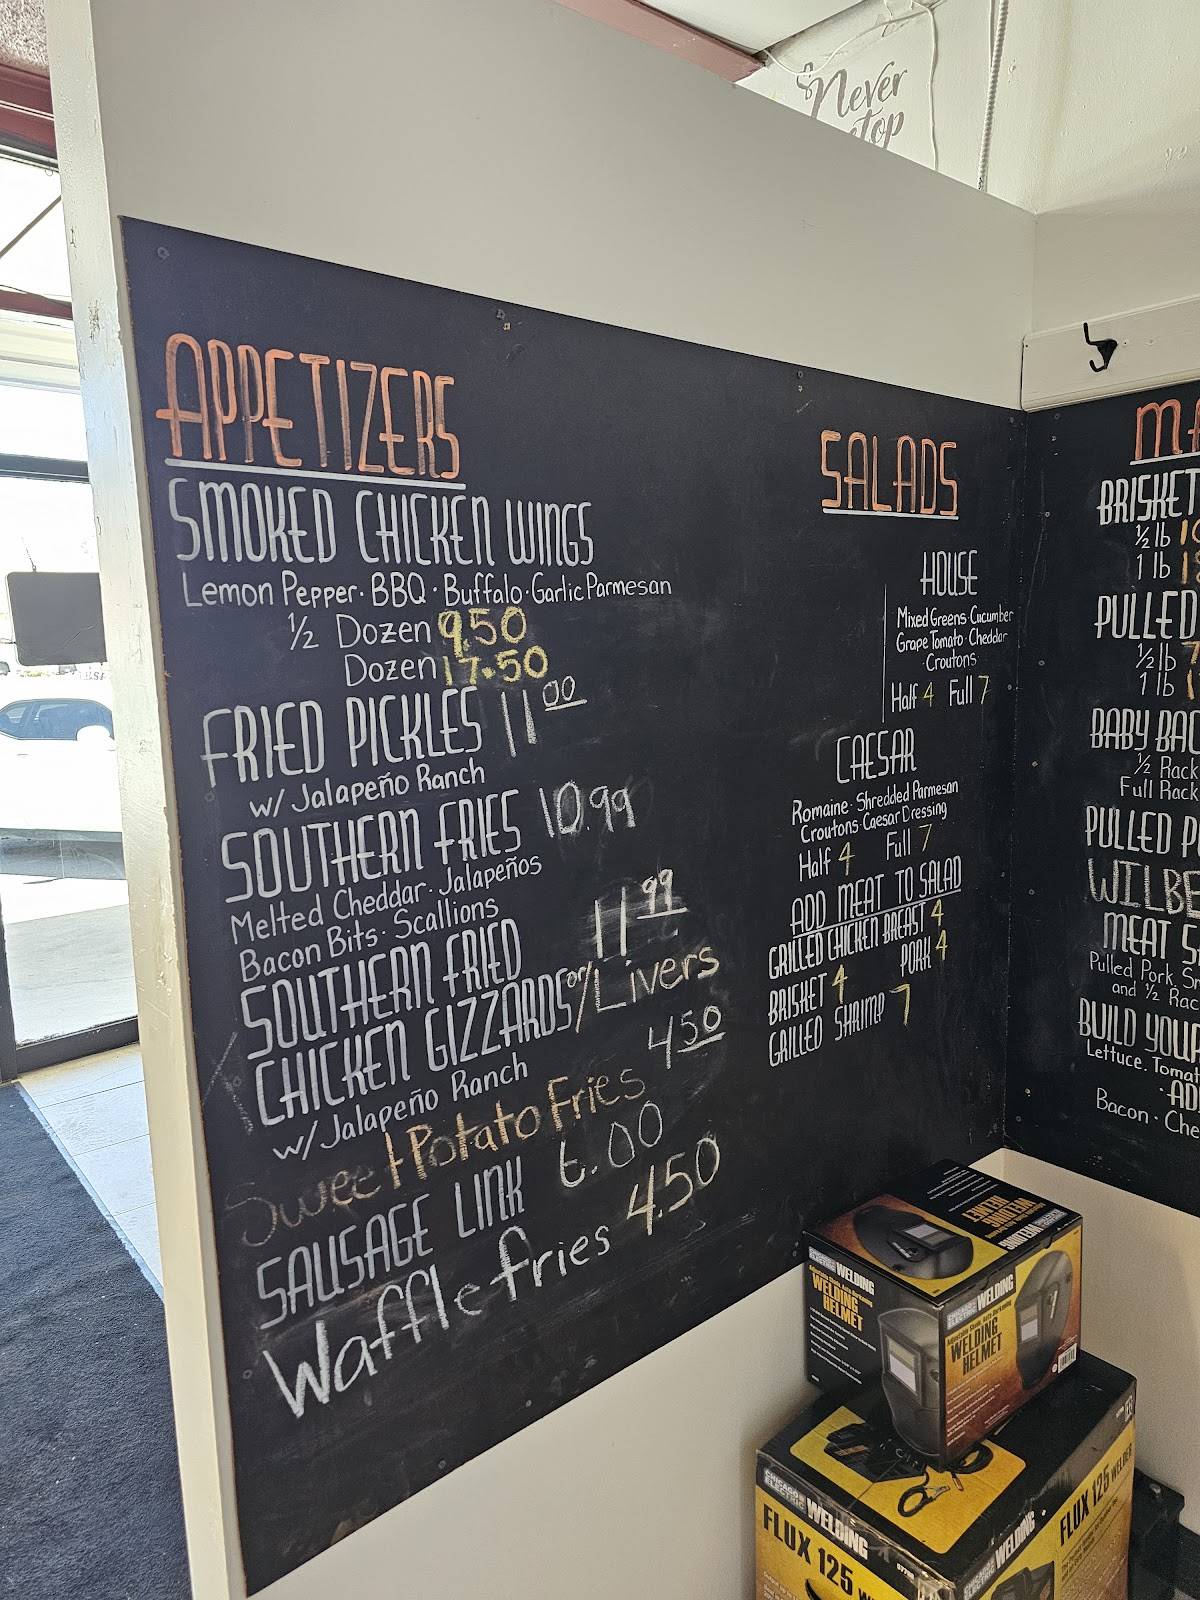 Never
APPETIZERS
SMOKED CHICKEN WINGS
Lemon Pepper · BBQ · Buffalo · Garlic Parmesan
1/2 Dozen 9.50
Dozen 17.50
FRIED PICKLES 11 00
w/ Jalapeño Ranch
SOUTHERN FRIES 10.99
Melted Cheddar · Jalapeños
Bacon Bits · Scallions
SOUTHERN FRIED 11 99
CHICKEN GIZZARDS or/Livers
w/ Jalapeño Ranch
Sweet Potato Fries 4 50
SAUSAGE LINK 6.00
Waffle fries 4.50
SALADS
HOUSE
Mixed Greens · Cucumber
Grape Tomato · Cheddar
Croutons
Half 4 Full 7
CAESAR
Romaine · Shredded Parmesan
Croutons · Caesar Dressing
Half 4 Full 7
ADD MEAT TO SALAD
GRILLED CHICKEN BREAST 4
BRISKET 4 PORK 4
GRILLED SHRIMP 7
BRISKET
1/2 lb
1 lb
PULLED
1/2 lb
1 lb
BABY
1/2 Rack
Full Rack
PULLED
MEAT
Pulled Pork
and 1/2
BUILD YOUR
Lettuce
Bacon
CHICAGO ELECTRIC WELDING
WELDING HELMET
CHICAGO ELECTRIC WELDING
WELDING HELMET
CHICAGO ELECTRIC WELDING
FLUX 125
CHICAGO ELECTRIC WELDING
FLUX 125 WELDER